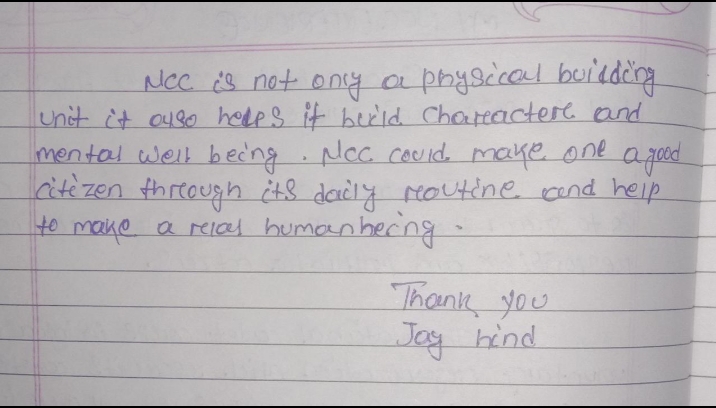 Ncc is not only a physical building
unit it also helps it build charactere and
mental well being. Ncc could make one a good
citizen through its daily routine and help
to make a real humanbeing.
Thank you
Jay hind